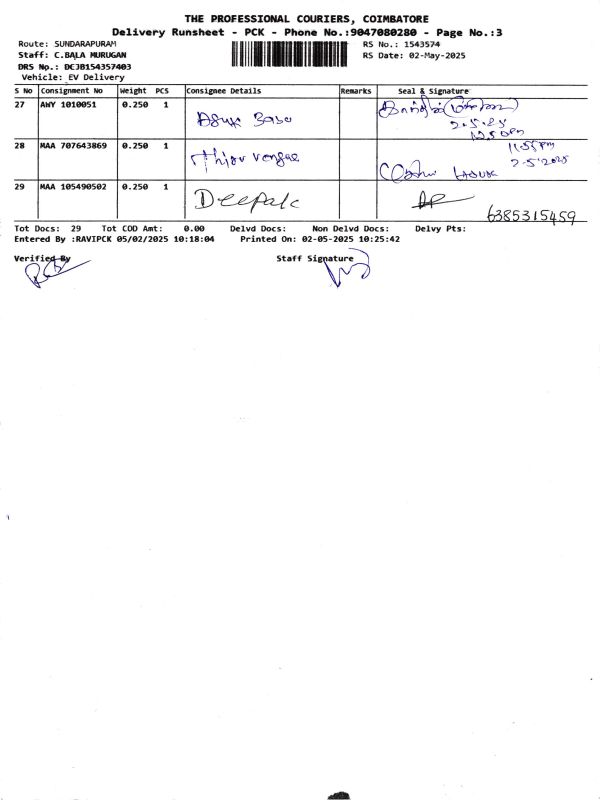 THE PROFESSIONAL COURIERS, COIMBATORE
Delivery Runsheet - PCK - Phone No.:9047080280 - Page No.:3
Route: SUNDARAPURAM
RS No.: 1543574
Staff: C.BALA MURUGAN
RS Date: 02-May-2025
DRS No.: DCJB154357403
Vehicle: EV Delivery
S No Consignment No Weight PCS Consignee Details Remarks Seal & Signature
27 AWY 1010051 0.250 1
2.5.25
12.50pm
28 MAA 707643869 0.250 1
11.55pm
2-5-2025
29 MAA 105490502 0.250 1 Deepak
6385315459
Tot Docs: 29 Tot COD Amt: 0.00 Delvd Docs: Non Delvd Docs: Delvy Pts:
Entered By :RAVIPCK 05/02/2025 10:18:04 Printed On: 02-05-2025 10:25:42
Verified By Staff Signature